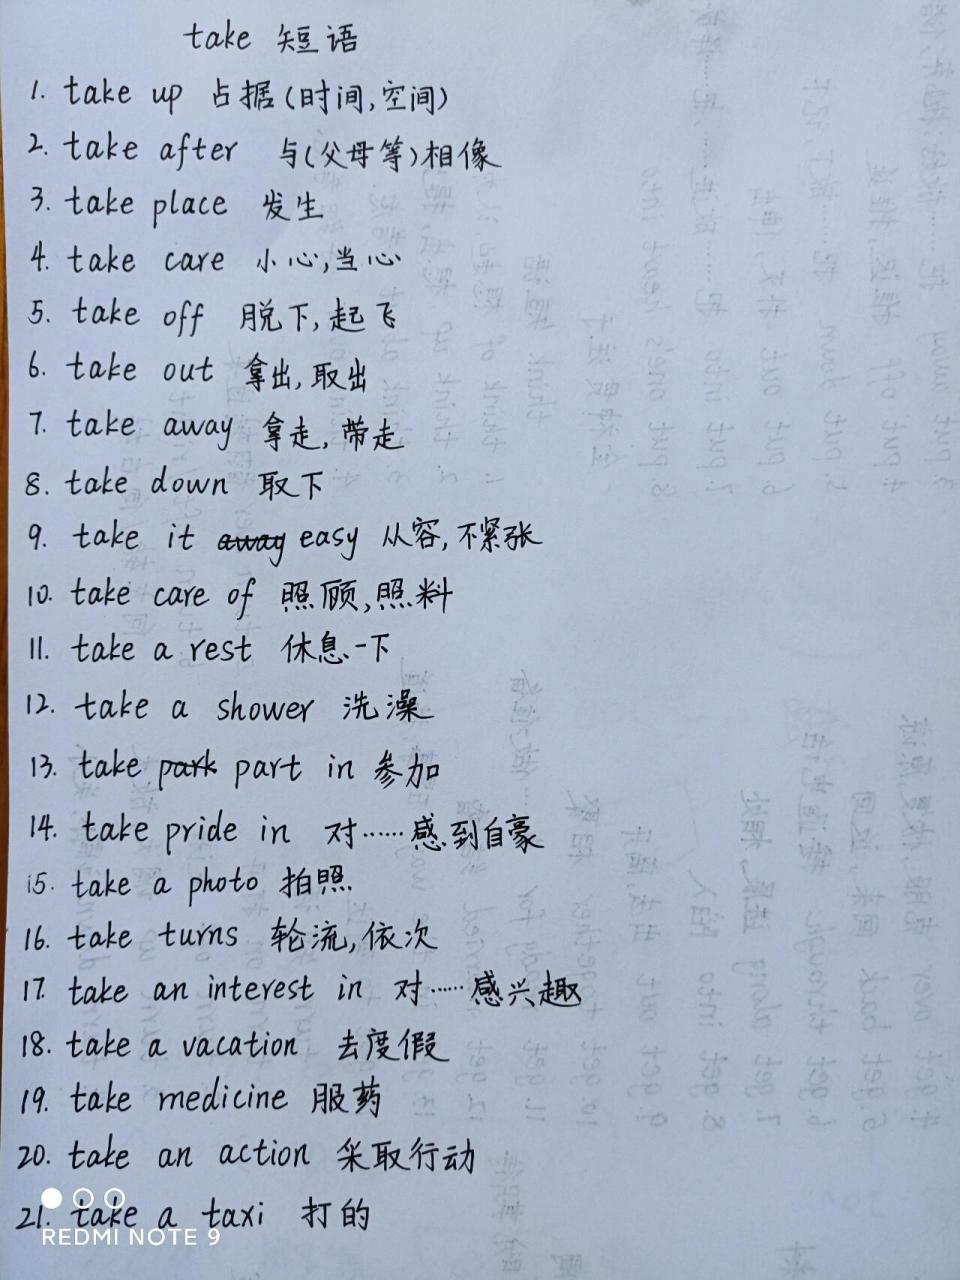 take 短语
1. take up 占据(时间,空间)
2. take after 与(父母等)相像
3. take place 发生
4. take care 小心,当心
5. take off 脱下,起飞
6. take out 拿出,取出
7. take away 拿走,带走
8. take down 取下
9. take it away easy 从容,不紧张
10. take care of 照顾,照料
11. take a rest 休息一下
12. take a shower 洗澡
13. take park part in 参加
14. take pride in 对……感到自豪
15. take a photo 拍照
16. take turns 轮流,依次
17. take an interest in 对……感兴趣
18. take a vacation 去度假
19. take medicine 服药
20. take an action 采取行动
21. take a taxi 打的
REDMI NOTE 9